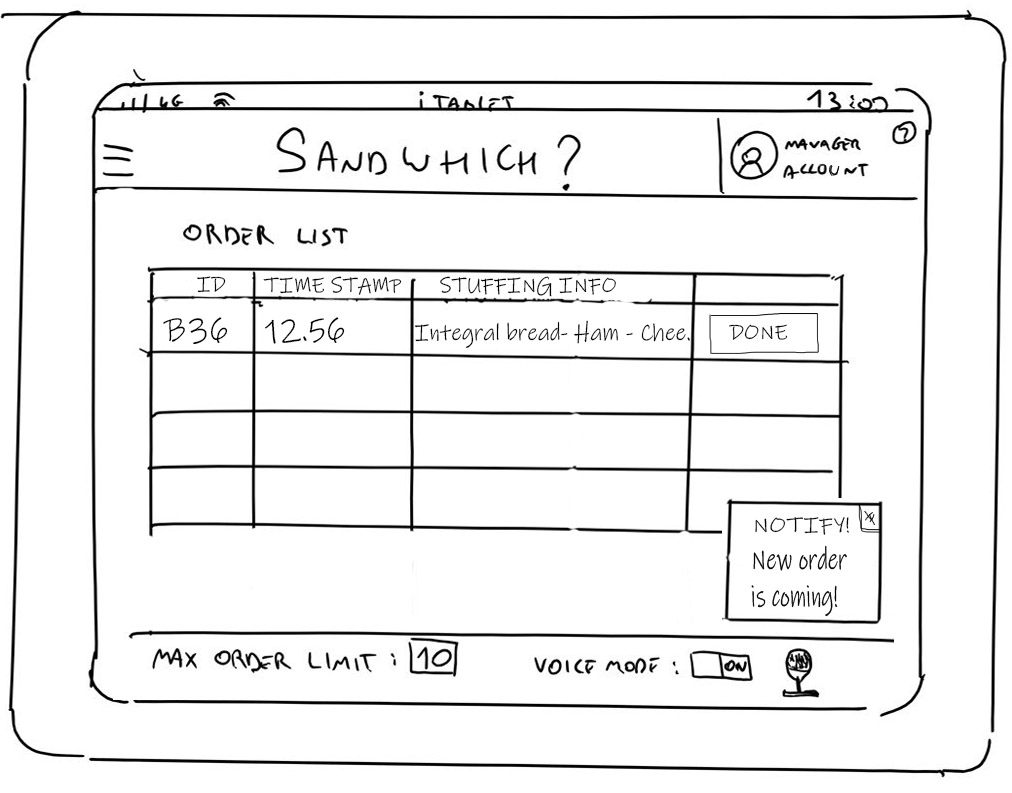 4G iTABLET 13:00
SANDWHICH?
MANAGER
ACCOUNT
?
ORDER LIST
ID TIME STAMP STUFFING INFO
B36 12.56 Integral bread- Ham - Chee. DONE
NOTIFY! X
New order
is coming!
MAX ORDER LIMIT: 10 VOICE MODE: ON